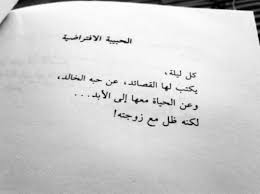 الحبيبة الافتراضية
كل ليلة،
يكتب لها القصائد، عن حبه الخالد،
وعن الحياة معها إلى الأبد...
لكنه ظل مع زوجته!